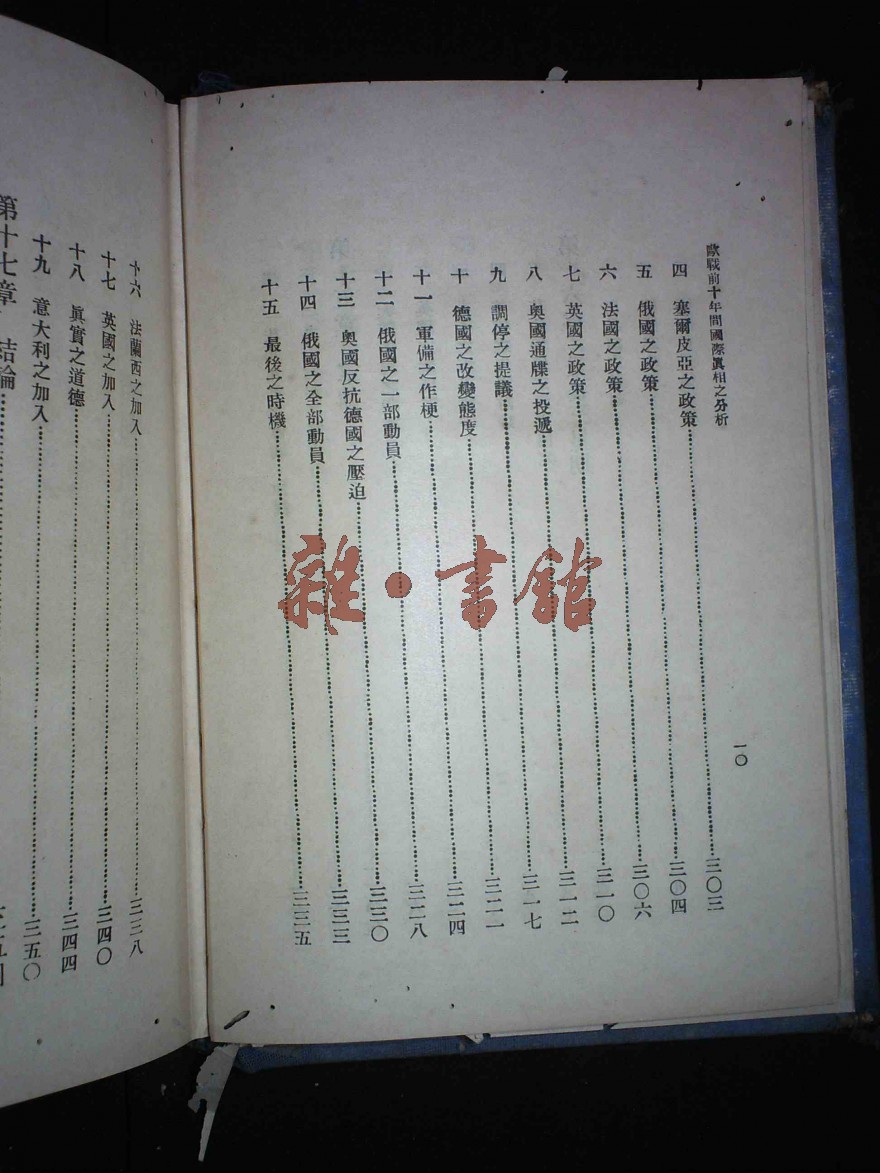 歐戰前十年間國際眞相之分析
一〇
四 塞爾皮亞之政策……三〇三
五 俄國之政策……三〇四
六 法國之政策……三〇六
七 英國之政策……三一〇
八 奧國通牒之投遞……三一二
九 調停之提議……三一七
十 德國之改變態度……三二一
十一 軍備之作梗……三二四
十二 俄國之一部動員……三二八
十三 奧國反抗德國之壓迫……三三〇
十四 俄國之全部動員……三三三
十五 最後之時機……三三五
十六 法蘭西之加入……三三八
十七 英國之加入……三四〇
十八 眞實之道德……三四四
十九 意大利之加入……三五〇
第十七章 結論……
雜·書館